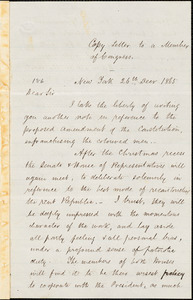 Copy letter to a Member
of Congress.
New York 26th Decr 1865
Dear Sir
I take the liberty of writing
you another note in reference to the
proposed Amendment of the Constitution
enfranchising the colored men...
After the Christmas recess
the Senate & House of Representatives will
again meet, to deliberate solemnly in
reference to the best mode of reconstructing
our great Republic. I trust, they will
be deeply impressed with the momentous
character of the work, and lay aside
all party feeling & all personal bias,
under a profound sense of patriotic
duty. The members of both Houses
will find it to be their wisest policy
to cooperate with the President, as much